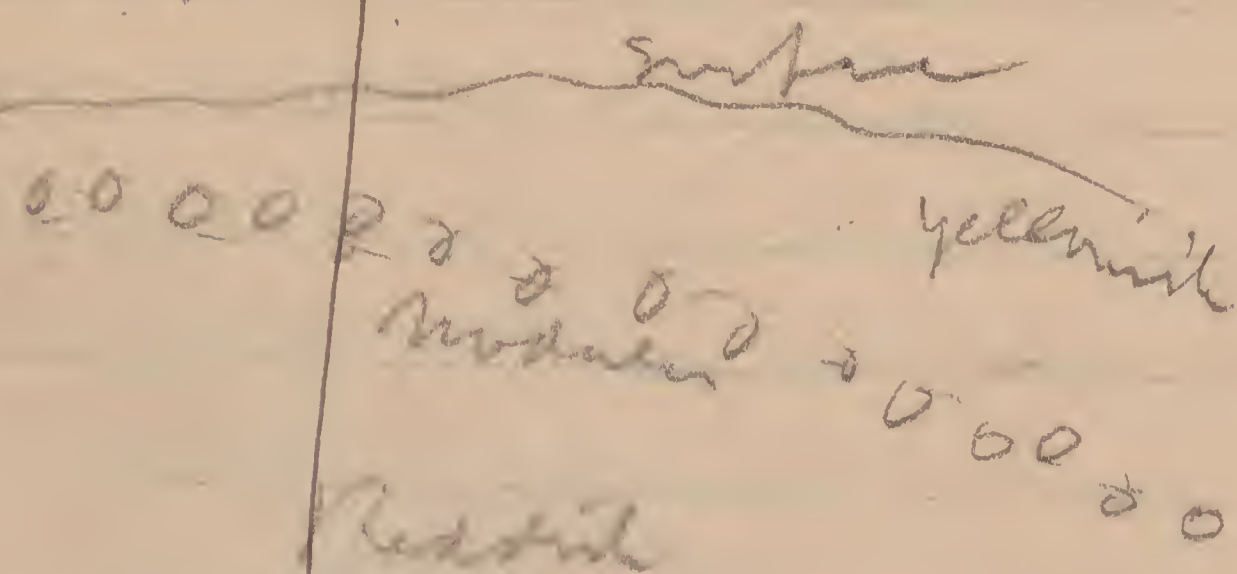 Surface
yellowish
Nodules
Reddish